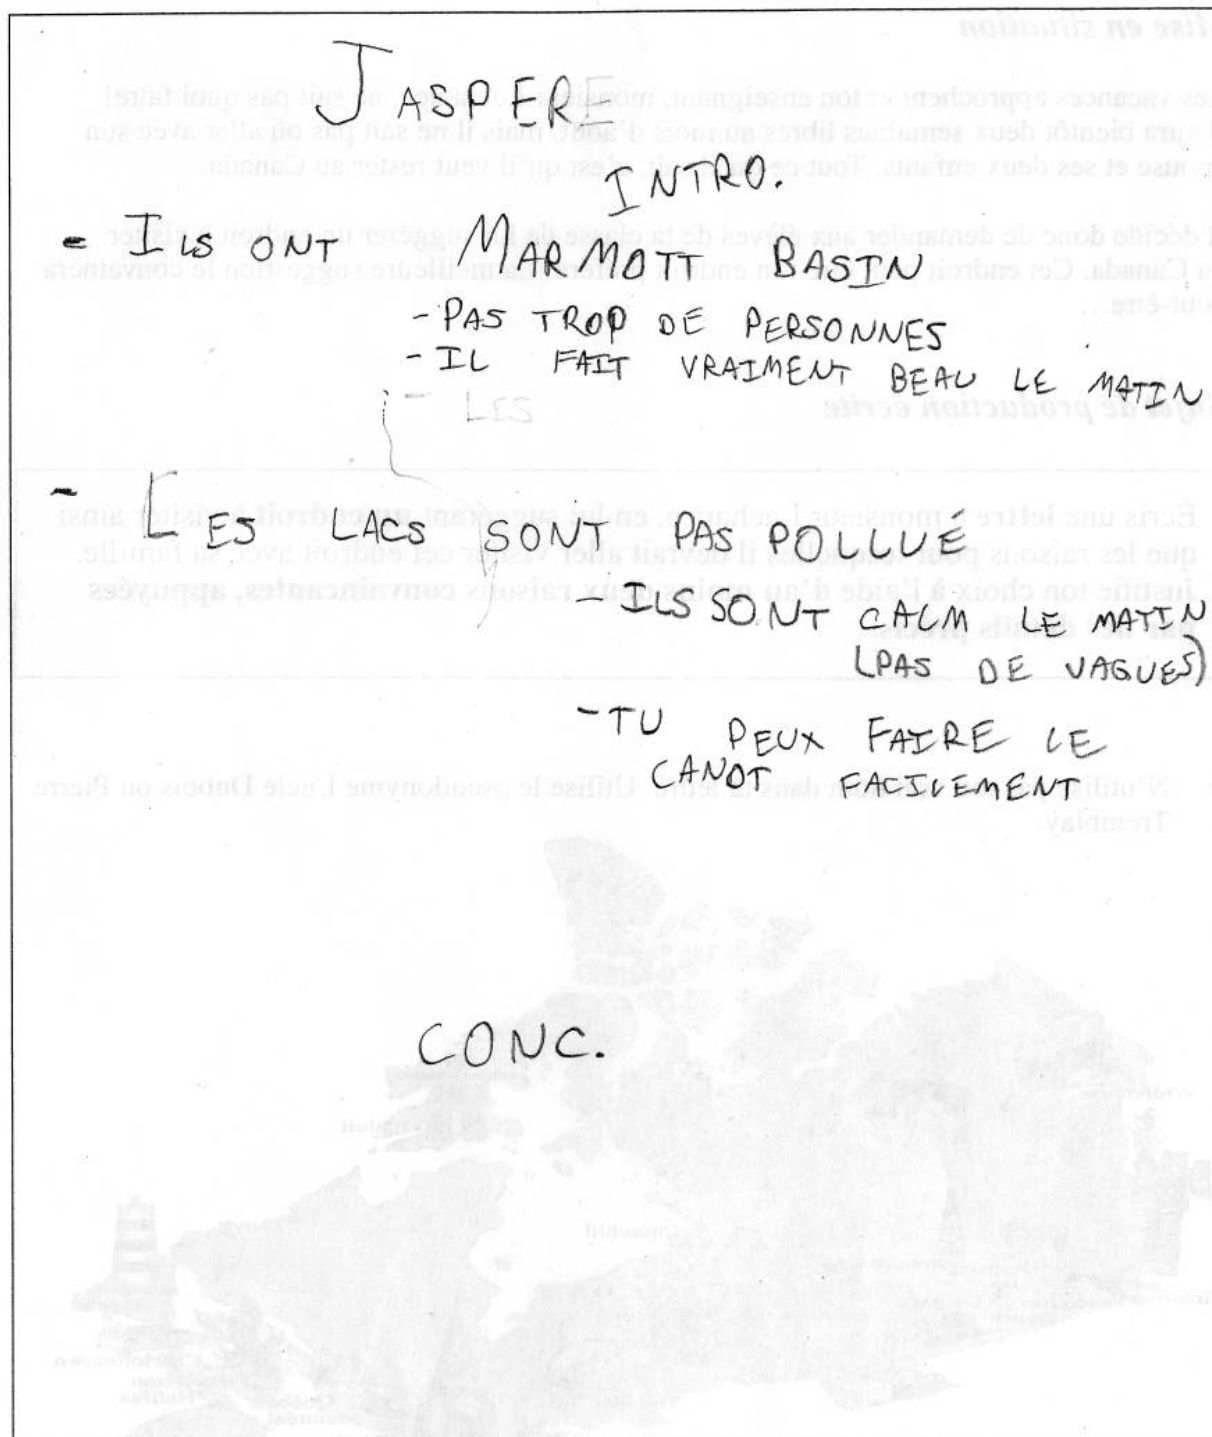 JASPERE
INTRO.
- ILS ONT MARMOTT BASIN
- PAS TROP DE PERSONNES
- IL FAIT VRAIMENT BEAU LE MATIN
- LES
- LES LACS SONT PAS POLLUÉ
- ILS SONT CALM LE MATIN
(PAS DE VAGUES)
- TU PEUX FAIRE LE
CANOT FACILEMENT
CONC.